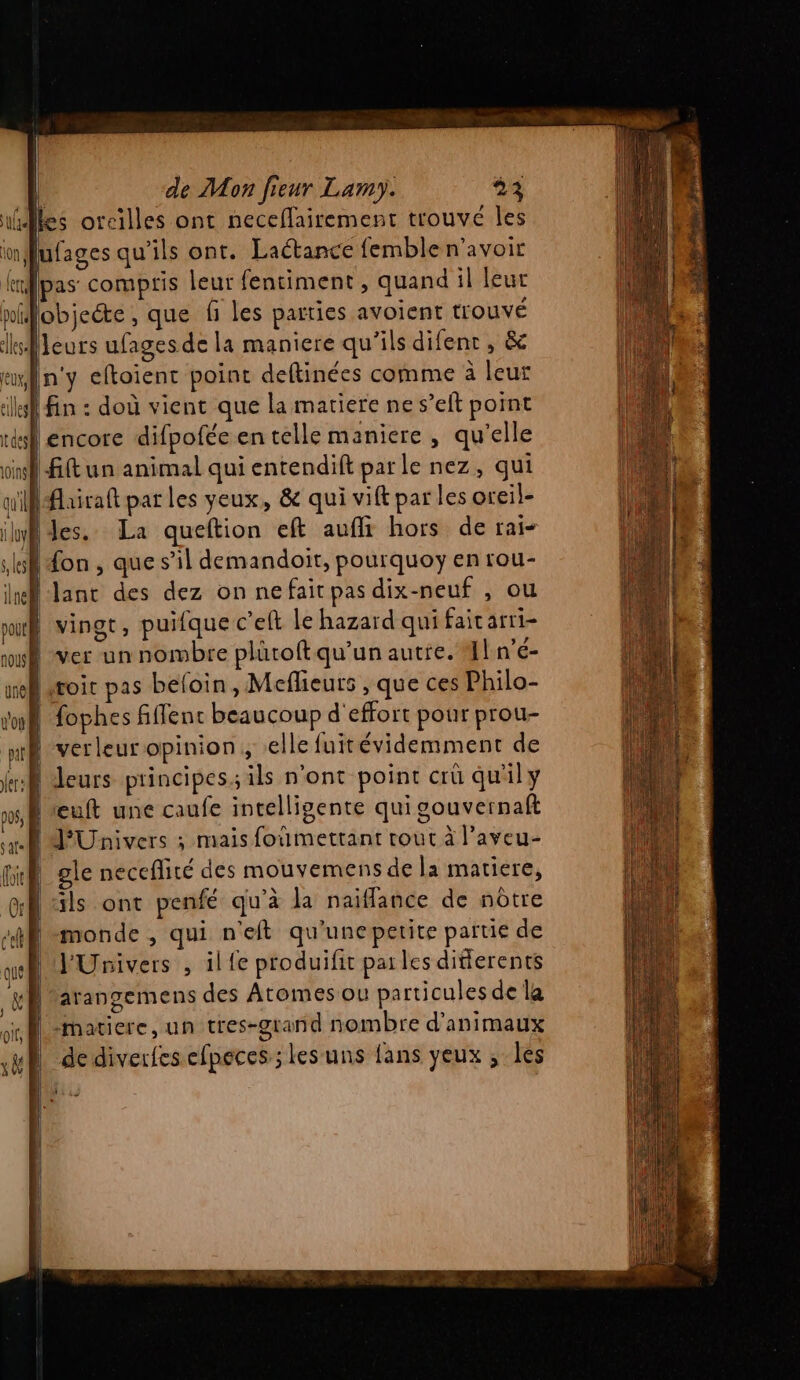 de Mon ſieur Lamy. 23
les oreilles ont neceſſairement trouvé les
uſages qu'ils ont. Lactance ſemble n'avoir
pas compris leur ſentiment, quand il leur
objecte, que ſi les parties avoient trouvé
leurs uſages de la maniere qu'ils diſent, &
n'y eſtoient point deſtinées comme à leur
fin : doù vient que la matiere ne s'eſt point
encore diſpoſée en telle maniere, qu'elle
fiſt un animal qui entendiſt par le nez, qui
flairaſt par les yeux, & qui viſt par les oreil-
les. La queſtion eſt auſſi hors de rai-
ſon, que s'il demandoit, pourquoy en rou-
lant des dez on ne fait pas dix-neuf, ou
vingt, puiſque c'eſt le hazard qui fait arri-
ver un nombre plûtoſt qu'un autre. Il n'é-
toit pas beſoin, Meſſieurs, que ces Philo-
ſophes fiſſent beaucoup d'effort pour prou-
ver leur opinion, elle ſuit évidemment de
leurs principes; ils n'ont point crû qu'il y
euſt une cauſe intelligente qui gouvernaſt
l'Univers ; mais ſoûmettant tout à l'aveu-
gle neceſſité des mouvemens de la matiere,
ils ont penſé qu'à la naiſſance de nôtre
monde, qui n'eſt qu'une petite partie de
l'Univers, il ſe produiſit par les differents
arangemens des Atomes ou particules de la
matiere, un tres-grand nombre d'animaux
de diverſes eſpeces ; les uns ſans yeux, les